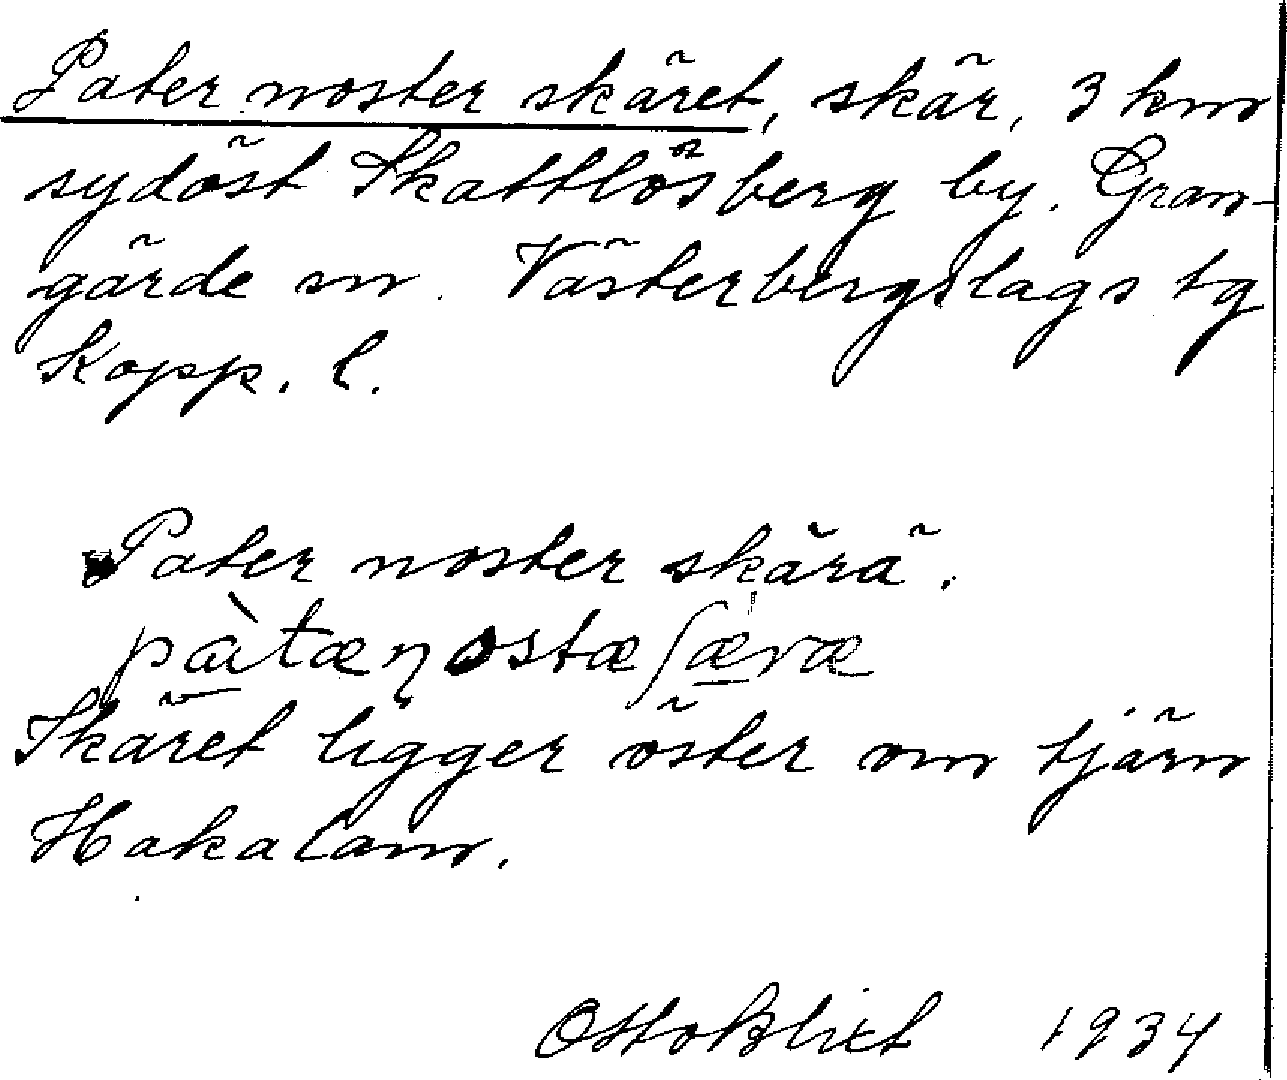 Pater noster skäret, skär, 3 km
sydöst Skattlösberg by. Gran-
gärde sn. Västerbergslags tg
Kopp. l.
Pater noster skärä.
pàtæɳostæʃæræ
Skäret ligger öster om tjärn
Hakalam.
Otto Blixt 1934